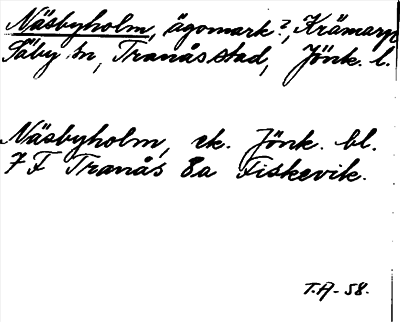 Näsbyholm, ägomark?, Krämarp
Säby sn, Tranås stad, Jönk. l.
Näsbyholm, ek. Jönk. bl.
7 F Tranås 8a Fiskevik.
T.A-58.